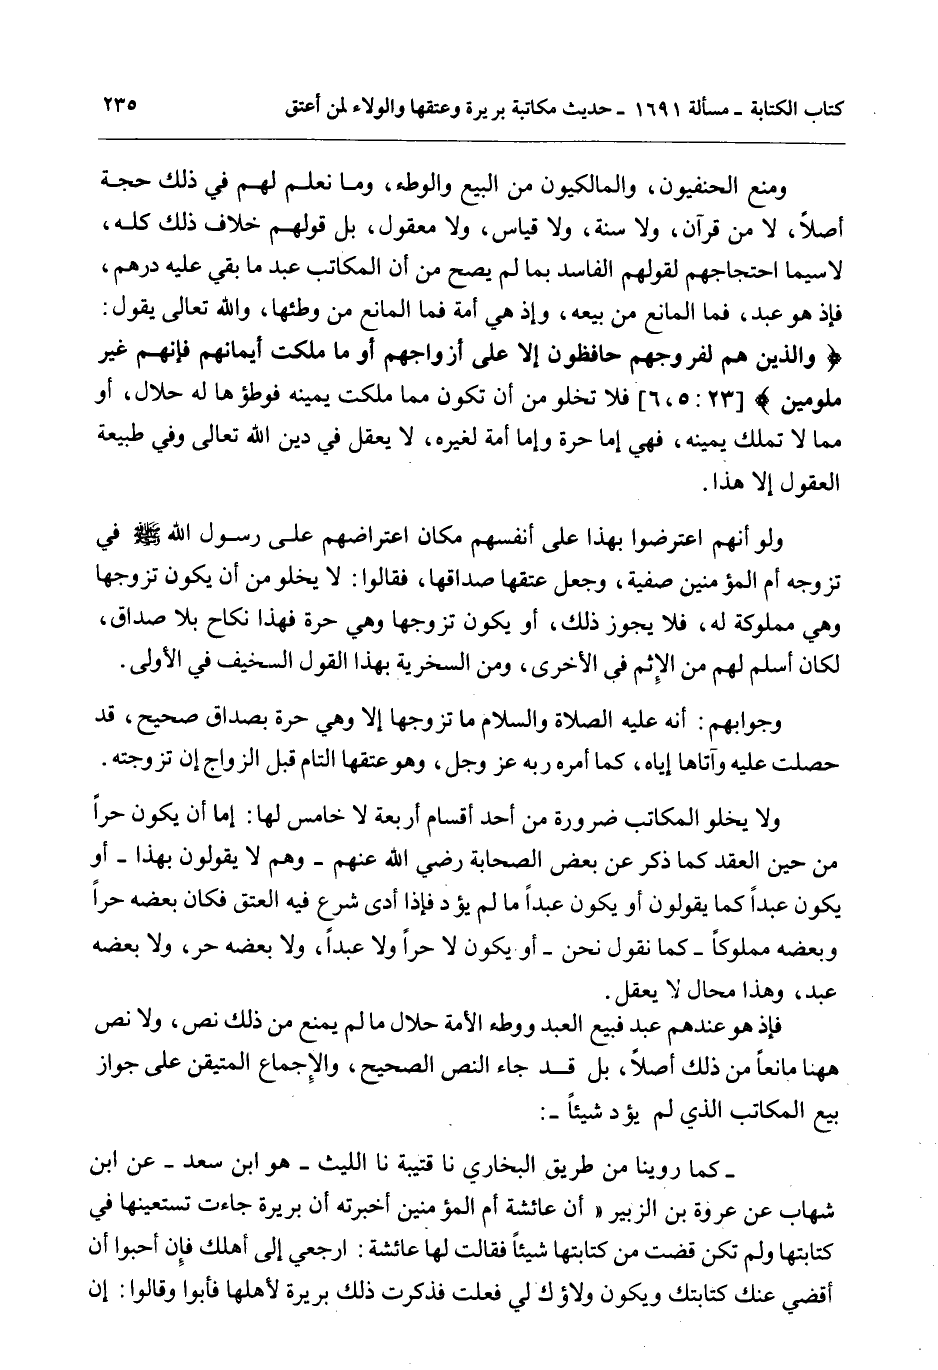 كتاب الكتابة - مسألة ١٦٩١ - حديث مكاتبة بريرة وعتقها والولاء لمن أعتق ٢٣٥
ومنع الحنفيون، والمالكيون من البيع والوطء، وما نعلم لهم في ذلك حجة
أصلاً، لا من قرآن، ولا سنة، ولا قياس، ولا معقول، بل قولهم خلاف ذلك كله،
لاسيما احتجاجهم لقولهم الفاسد بما لم يصح من أن المكاتب عبد ما بقي عليه درهم،
فإذ هو عبد، فما المانع من بيعه، وإذ هي أمة فما المانع من وطئها، والله تعالى يقول:
﴿ والذين هم لفروجهم حافظون إلا على أزواجهم أو ما ملكت أيمانهم فإنهم غير
ملومين ﴾ [٢٣: ٥، ٦] فلا تخلو من أن تكون مما ملكت يمينه فوطؤها له حلال، أو
مما لا تملك يمينه، فهي إما حرة وإما أمة لغيره، لا يعقل في دين الله تعالى وفي طبيعة
العقول إلا هذا.
ولو أنهم اعترضوا بهذا على أنفسهم مكان اعتراضهم على رسول الله ﷺ في
تزوجه أم المؤمنين صفية، وجعل عتقها صداقها، فقالوا: لا يخلو من أن يكون تزوجها
وهي مملوكة له، فلا يجوز ذلك، أو يكون تزوجها وهي حرة فهذا نكاح بلا صداق،
لكان أسلم لهم من الإثم في الأخرى، ومن السخرية بهذا القول السخيف في الأولى.
وجوابهم: أنه عليه الصلاة والسلام ما تزوجها إلا وهي حرة بصداق صحيح، قد
حصلت عليه وآتاها إياه، كما أمره ربه عز وجل، وهو عتقها التام قبل الزواج إن تزوجته.
ولا يخلو المكاتب ضرورة من أحد أقسام أربعة لا خامس لها: إما أن يكون حراً
من حين العقد كما ذكر عن بعض الصحابة رضي الله عنهم - وهم لا يقولون بهذا - أو
يكون عبداً كما يقولون أو يكون عبداً ما لم يؤد فإذا أدى شرع فيه العتق فكان بعضه حراً
وبعضه مملوكاً - كما نقول نحن - أو يكون لا حراً ولا عبداً، ولا بعضه حر، ولا بعضه
عبد، وهذا محال لا يعقل.
فإذ هو عندهم عبد فبيع العبد ووطء الأمة حلال ما لم يمنع من ذلك نص، ولا نص
ههنا مانعاً من ذلك أصلاً، بل قد جاء النص الصحيح، والإجماع المتيقن على جواز
بيع المكاتب الذي لم يؤد شيئاً -:
- كما روينا من طريق البخاري نا قتيبة نا الليث - هو ابن سعد - عن ابن
شهاب عن عروة بن الزبير « أن عائشة أم المؤمنين أخبرته أن بريرة جاءت تستعينها في
كتابتها ولم تكن قضت من كتابتها شيئاً فقالت لها عائشة: ارجعي إلى أهلك فإن أحبوا أن
أقضي عنك كتابتك ويكون ولاؤك لي فعلت فذكرت ذلك بريرة لأهلها فأبوا وقالوا: إن